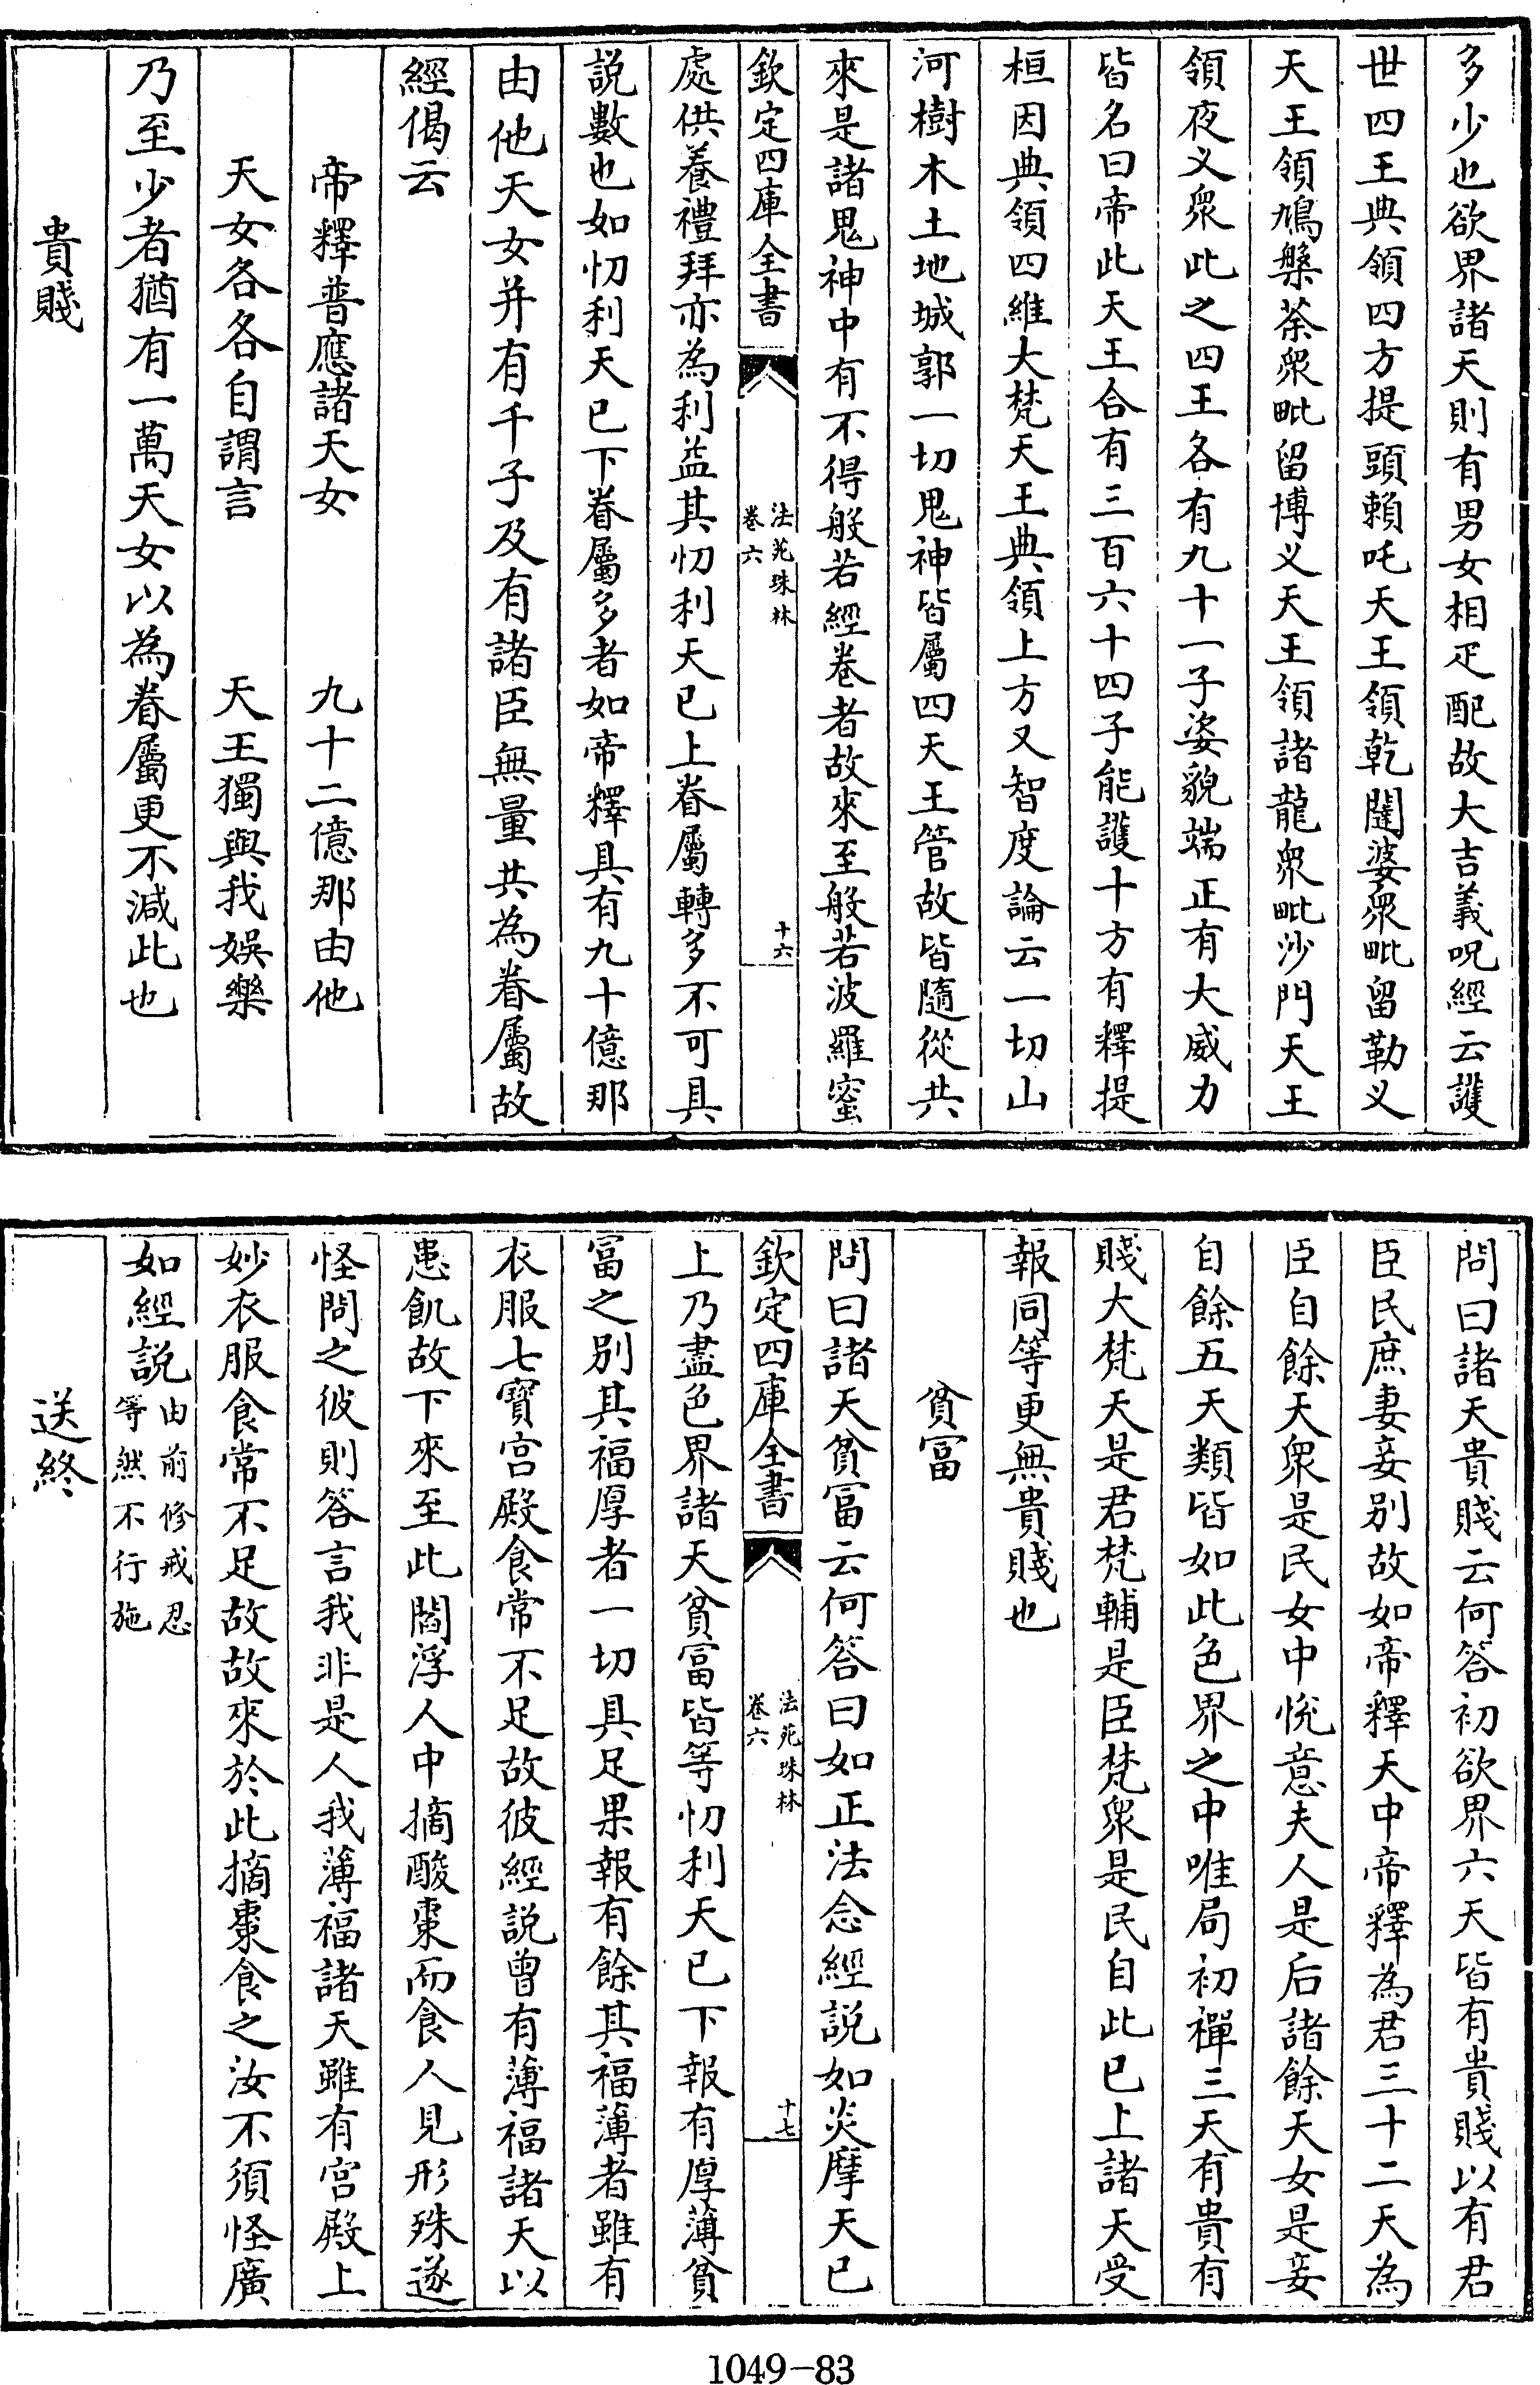 多少也欲界諸天則有男女相疋配故大吉義呪經云護
世四王典領四方提頭賴吒天王領乾闥婆衆毗留勒义
天王領鳩槃荼衆毗留博义天王領諸龍衆毗沙門天王
領夜义衆此之四王各有九十一子姿貌端正有大威力
皆名曰帝此天王合有三百六十四子能護十方有釋提
桓因典領四維大梵天王典領上方又智度論云一切山
河樹木土地城郭一切鬼神皆屬四天王管故皆隨從共
來是諸鬼神中有不得般若經卷者故來至般若波羅蜜
欽定四庫全書
法苑珠林
卷六
十六
處供養禮拜亦為利益其忉利天已上眷屬轉多不可具
説數也如忉利天已下眷屬多者如帝釋具有九十億那
由他天女并有千子及有諸臣無量共為眷屬故
經偈云
帝釋普應諸天女　九十二億那由他
天女各各自謂言　天王獨與我娛樂
乃至少者猶有一萬天女以為眷屬更不減此也
貴賤
問曰諸天貴賤云何答初欲界六天皆有貴賤以有君
臣民庶妻妾别故如帝釋天中帝釋為君三十二天為
臣自餘天衆是民女中悅意夫人是后諸餘天女是妾
自餘五天類皆如此色界之中唯局初禪三天有貴有
賤大梵天是君梵輔是臣梵衆是民自此已上諸天受
報同等更無貴賤也
貧富
問曰諸天貧富云何答曰如正法念經説如炎摩天已
欽定四庫全書
法苑珠林
卷六
十七
上乃盡色界諸天貧富皆等忉利天已下報有厚薄貧
富之别其福厚者一切具足果報有餘其福薄者雖有
衣服七寳宫殿食常不足故彼經説曾有薄福諸天以
患飢故下來至此閻浮人中摘酸棗而食人見形殊遂
怪問之彼則答言我非是人我薄福諸天雖有宫殿上
妙衣服食常不足故故來於此摘棗食之汝不須怪廣
如經説由前修戒忍
等然不行施
送終
1049-83